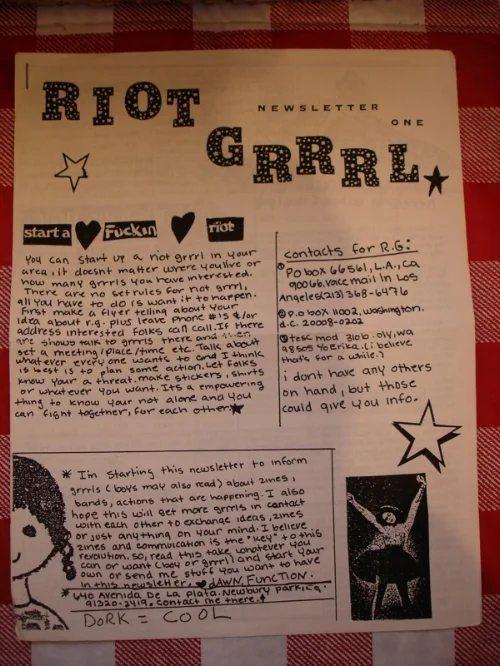 RIOT
NEWSLETTER
ONE
GRRRL
start a Fuckin riot
you can start up a riot grrrl in your
area, it doesnt matter where you live or
how many grrrls you have interested.
There are no set rules for riot grrrl,
all you have to do is want it to happen.
First make a flyer telling about your
idea about r.g. plus leave phone #'s &/or
address interested folks can call. If there
are shows talk to grrrls there and
set a meeting/place/time etc. Talk about
whatever every one wants to and I think
is best is to plan some action. Let folks
know your a threat. make stickers, shirts
or whatever you want. Its a empowering
thing to know your not alone and you
can fight together, for each other
contacts for R.G:
PO box 66561, L.A., CA
90066. voice mail in Los
Angeles (213) 368-6476
P.O box 11002, washington.
d.c. 20008-0202
tesc mod 310b. oly, wa
98505 %Erika. (i believe
that's for a while.)
i dont have any others
on hand, but those
could give you info.
* I'm starting this newsletter to inform
grrrls (boys may also read) about zines,
bands, actions that are happening. I also
hope this will get more grrrls in contact
with each other to exchange ideas, zines
or just anything on your mind. I believe
zines and communication is the "key" to this
revolution. so, read this take whatever you
can or want (boy or grrrl) and start your
own or send me stuff you want to have
in this newsletter. ♥ dAWN, FUNCTION.
* 640 Avenida De La Plata. Newbury park, ca.
91320-2419. contact me there.
DORK = COOL